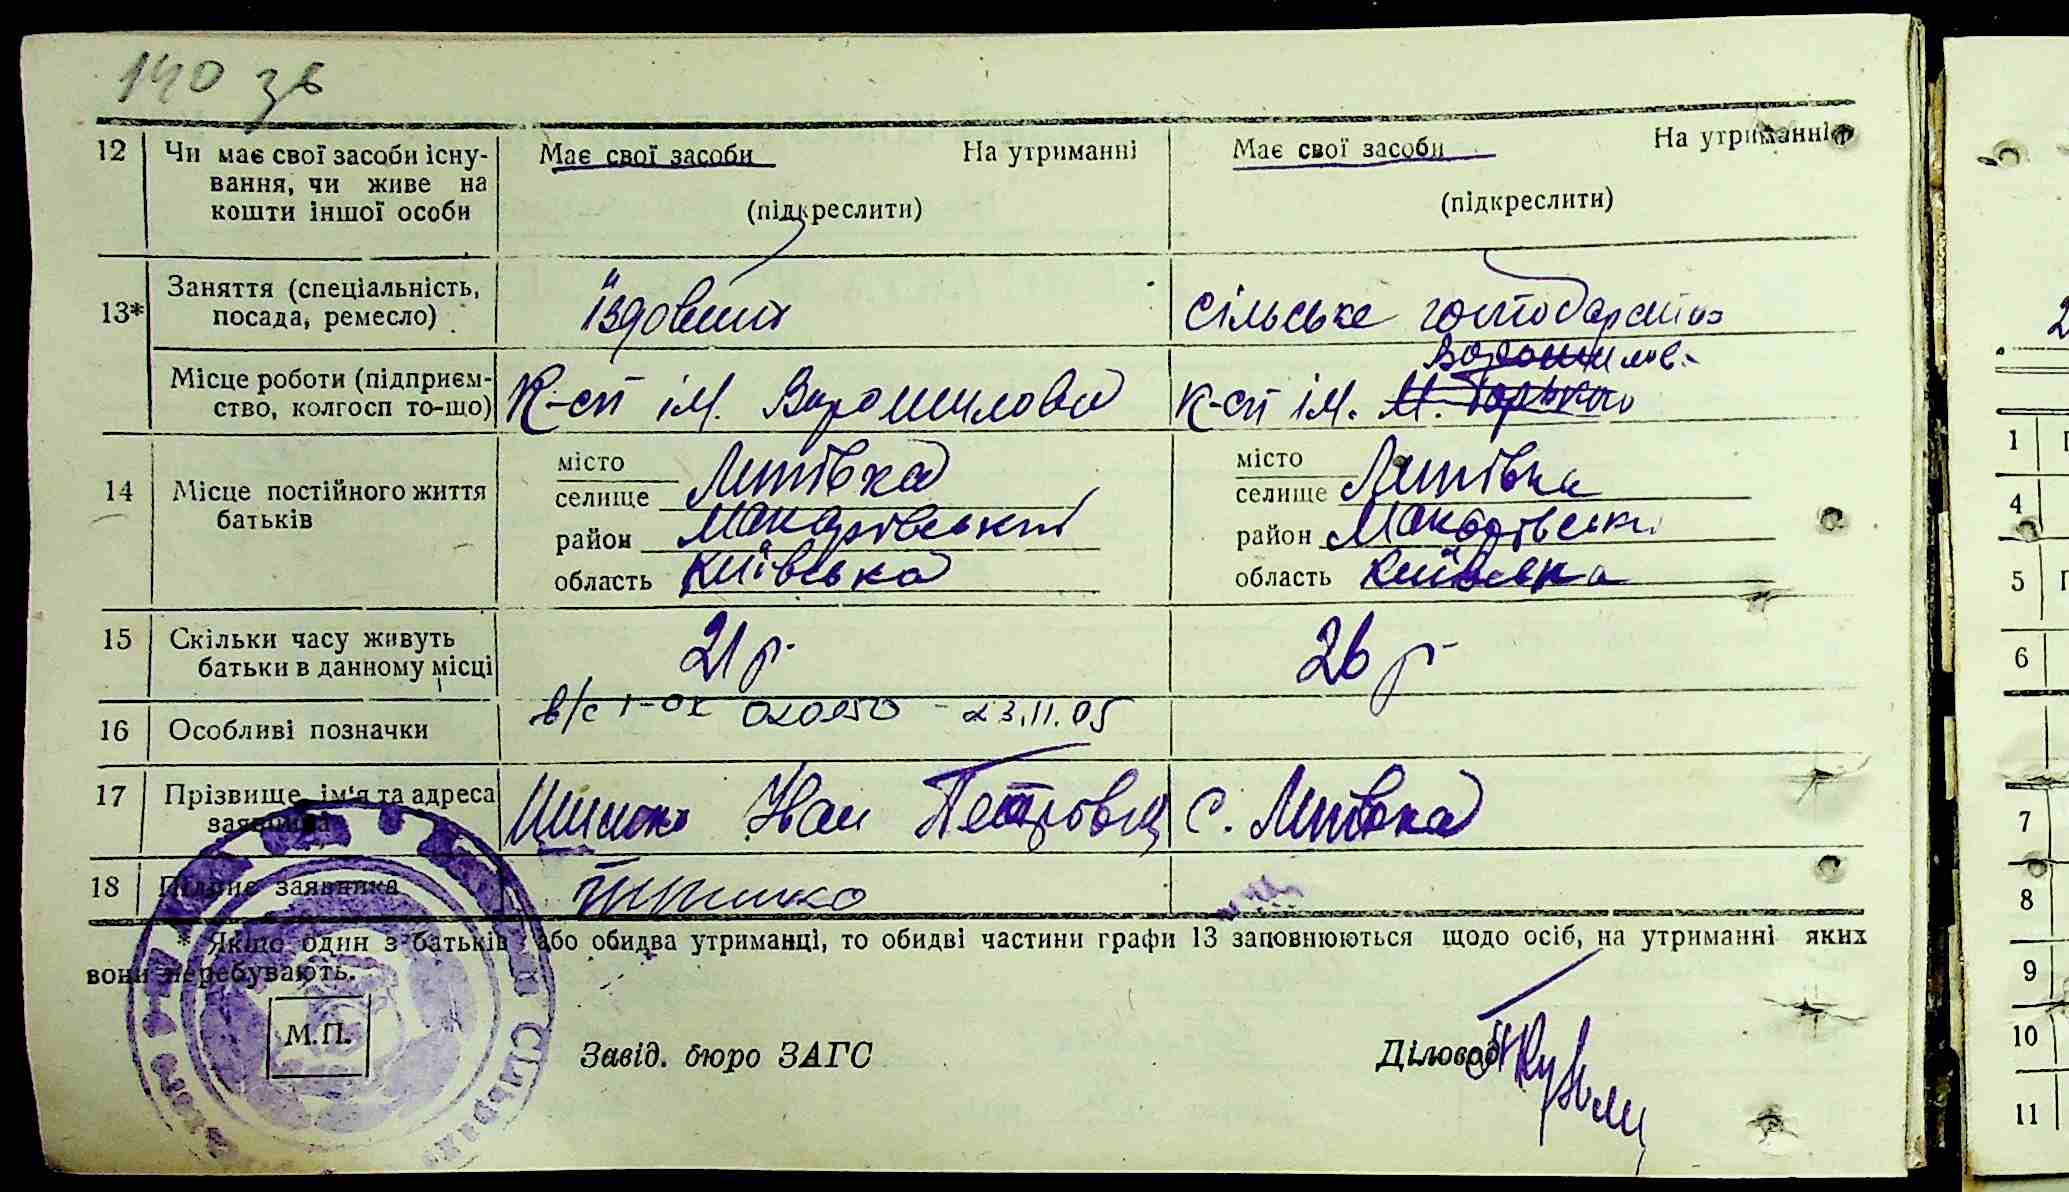 140 зв
12 Чи має свої засоби існу- Має свої засоби На утриманні Має свої засоби На утриманні
вання, чи живе на
кошти іншої особи (підкреслити) (підкреслити)
13* Заняття (спеціальність,
посада, ремесло) їздовий сільське господарство
Ворошилов.
Місце роботи (підприєм-
ство, колгосп то-що) К-сп ім. Ворошилова К-сп ім. М. Горького
14 Місце постійного життя
батьків
місто
селище Липівка
район Макарівський
область Київська
місто
селище Липівка
район Макарівськи
область Київська
15 Скільки часу живуть
батьки в данному місці 21 р. 26 р.
16 Особливі позначки в/с І-ОК 020950 - 23.11.05
17 Прізвище, ім'я та адреса
заявника Іван Петрович с. Липівка
18 Підпис заявника
* Якщо один з батьків або обидва утриманці, то обидві частини графи 13 заповнюються щодо осіб, на утриманні яких
вони перебувають.
М.П.
Завід. бюро ЗАГС Діловод
1
4
5
6
7
8
9
10
11